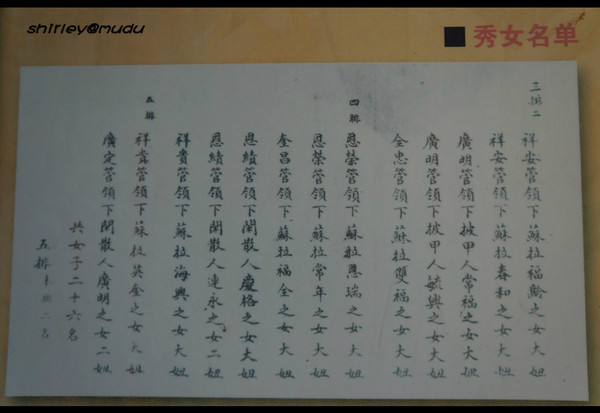 shirley@mudu
■ 秀女名单
三排二
祥安管領下蘇拉福齡之女大妞
祥安管領下蘇拉春和之女大妞
廣明管領下披甲人常福之女大妞
廣明管領下披甲人毓興之女大妞
全忠管領下蘇拉雙福之女大妞
四排
恩榮管領下蘇拉恩瑞之女大妞
恩榮管領下蘇拉常年之女大妞
奎昌管領下蘇拉福全之女大妞
恩績管領下閑散人慶格之女大妞
恩績管領下閑散人連永之女二妞
祥貴管領下蘇拉海興之女大妞
五排
祥貴管領下蘇拉英奎之女大妞
廣定管領下閑散人廣明之女二妞
共女子二十六名
五排末班二名